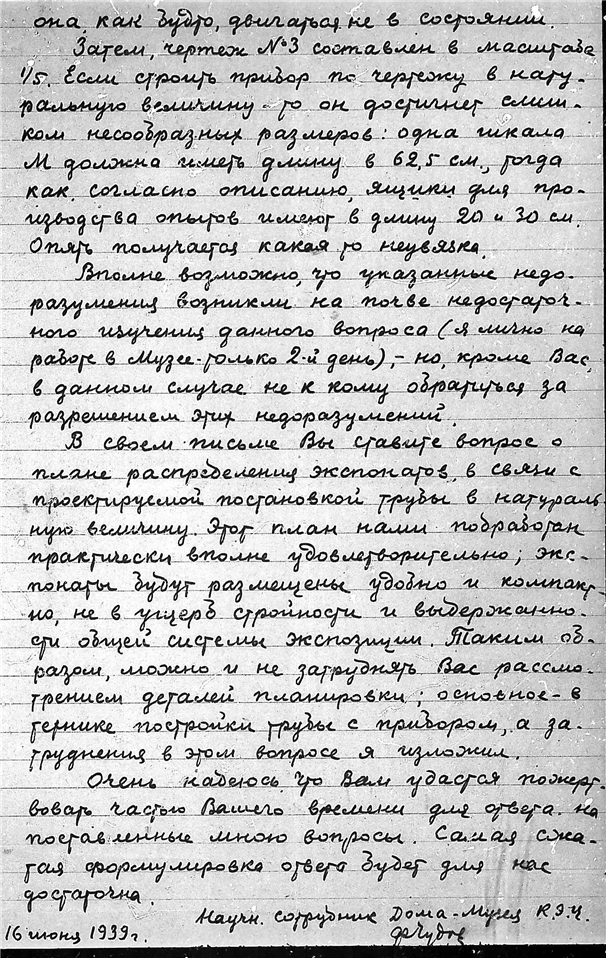 она, как будто, двигаться не в состоянии.
Затем, чертеж №3 составлен в масштабе
1/5. Если строить прибор по чертежу в нату-
ральную величину - то он достигнет слиш-
ком несообразных размеров: одна шкала
М должна иметь длину в 62,5 см., тогда
как, согласно описанию, ящики для про-
изводства опытов имеют в длину 20 и 30 см.
Опять получается какая то неувязка.
Вполне возможно, что указанные недо-
разумения возникли на почве недостаточ-
ного изучения данного вопроса (я лично на
работе в Музее - только 2-й день), - но, кроме Вас,
в данном случае не к кому обратиться за
разрешением этих недоразумений.
В своем письме Вы ставите вопрос о
плане распределения экспонатов, в связи с
проектируемой постановкой трубы в натураль-
ную величину. Этот план нами
практически вполне удовлетворительно; экс-
понаты будут размещены удобно и компакт-
но, не в ущерб стройности и выдержанно-
сти общей системы экспозиции. Таким об-
разом, можно и не затруднять Вас рассмо-
трением деталей планировки; основное - в
технике постройки трубы с прибором, а за-
труднения в этом вопросе я изложил.
Очень надеюсь, что Вам удастся пожерт-
вовать частью Вашего времени для ответа на
поставленные мною вопросы. Самая сжа-
тая формулировка ответа будет для нас
достаточна.
Научн. сотрудник Дома-Музея К.Э.Ц.
16 июня 1939 г. ФЧудов